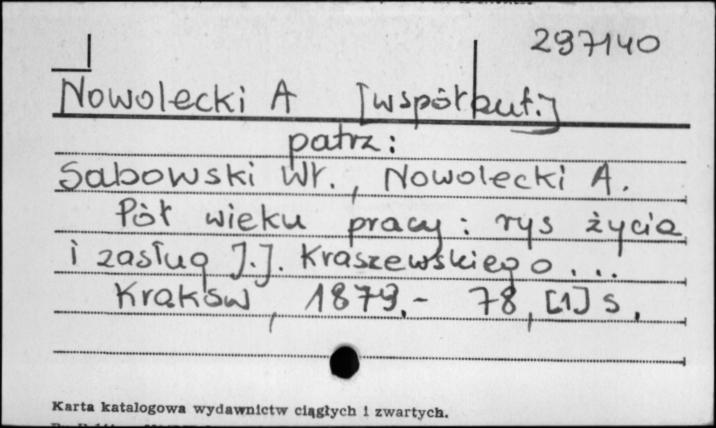 297140
Nowolecki A [współaut.]
patrz:
Sabowski Wł., Nowolecki A.
Pół wieku pracy : rys życia
i zasług J.J. Kraszewskiego ...
Kraków, 1879.- 78, [1] s.
Karta katalogowa wydawnictw ciągłych i zwartych.